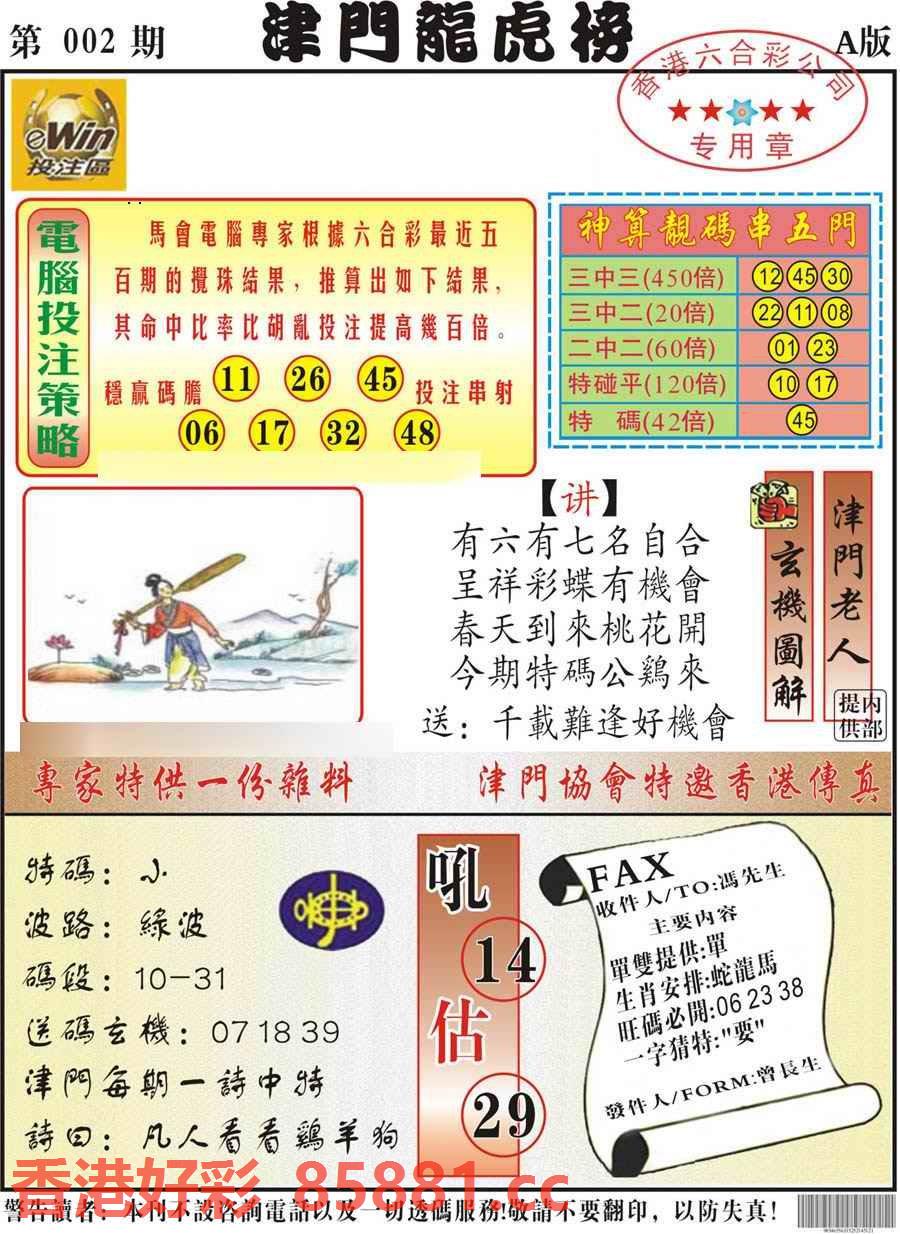 第 002 期
津門龍虎榜
A版
香港六合彩公司
★★★★
专用章
eWin
投注區
電腦投注策略
馬會電腦專家根據六合彩最近五
百期的攪珠結果，推算出如下結果，
其命中比率比胡亂投注提高幾百倍。
穩贏碼膽 11 26 45 投注串射
06 17 32 48
神算靚碼串五門
三中三(450倍) 12 45 30
三中二(20倍) 22 11 08
二中二(60倍) 01 23
特碰平(120倍) 10 17
特 碼(42倍) 45
【讲】
有六有七名自合
呈祥彩蝶有機會
春天到來桃花開
今期特碼公鷄來
送：千載難逢好機會
玄機圖解
津門老人
内部提供
專家特供一份雜料
津門協會特邀香港傳真
特碼：小
波路：綠波
碼段：10-31
送碼玄機：07 18 39
津門每期一詩中特
詩曰：凡人看看鷄羊狗
吼
14
估
29
FAX
收件人/TO:馮先生
主要内容
單雙提供:單
生肖安排:蛇龍馬
旺碼必開:06 23 38
一字猜特:"要"
發件人/FORM:曾長生
香港好彩 85881.cc
警告讀者：本刊不設咨詢電話以及一切透碼服務!敬請不要翻印，以防失真!